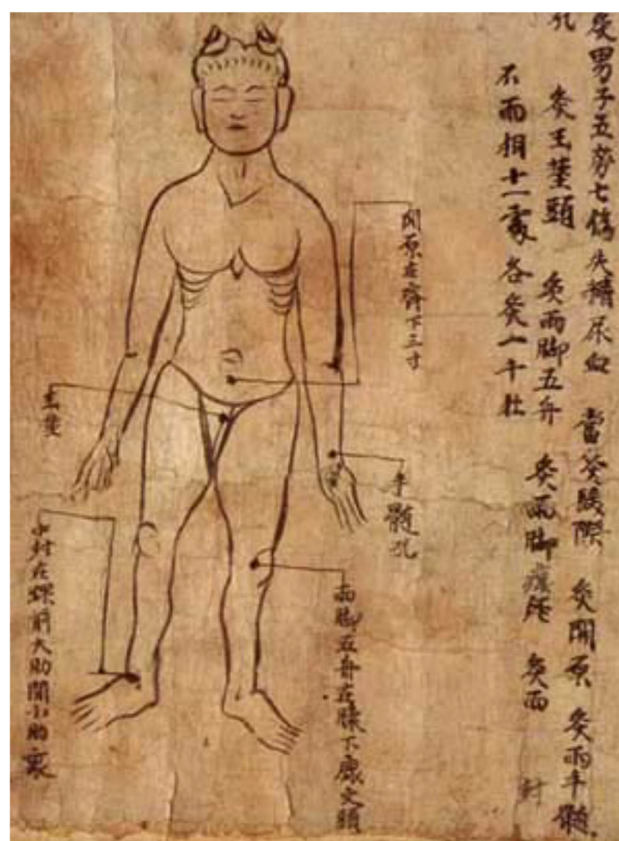 灸男子五勞七傷失精尿血 當灸際 灸關原 灸兩手髓
孔 灸玉莖頭 灸兩脚五舟 灸兩脚 灸兩 封
不兩相十一處各灸一千壯
關原在齊下三寸
玉莖
手髓孔
兩脚五舟在膝下文頭
中封在踝前大助間小助裏